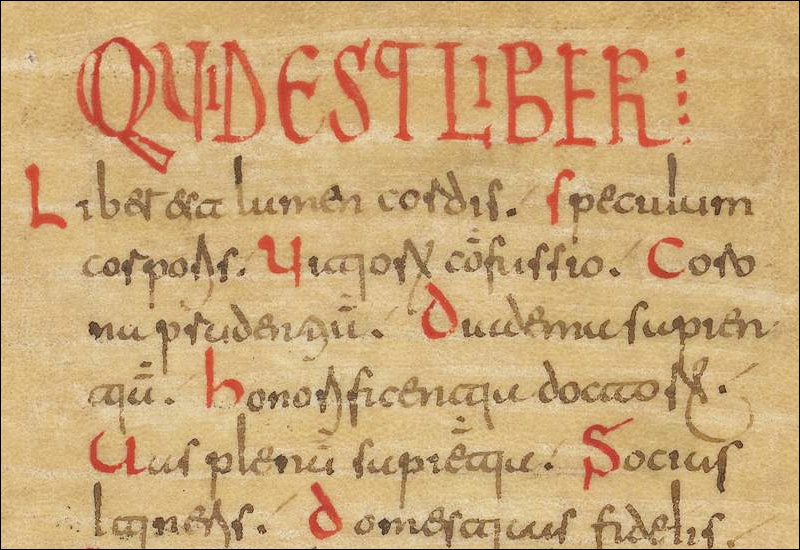 QUID EST LIBER
Liber est lumen cordis. Speculum
corporis. Uitioꝝ cōfussio. Coro
na prudentiū. Diadema sapien
tiū. honorificentia doctoꝝ.
Uas plenū sapiētia. Socius
Itineris. domesticus fidelis.